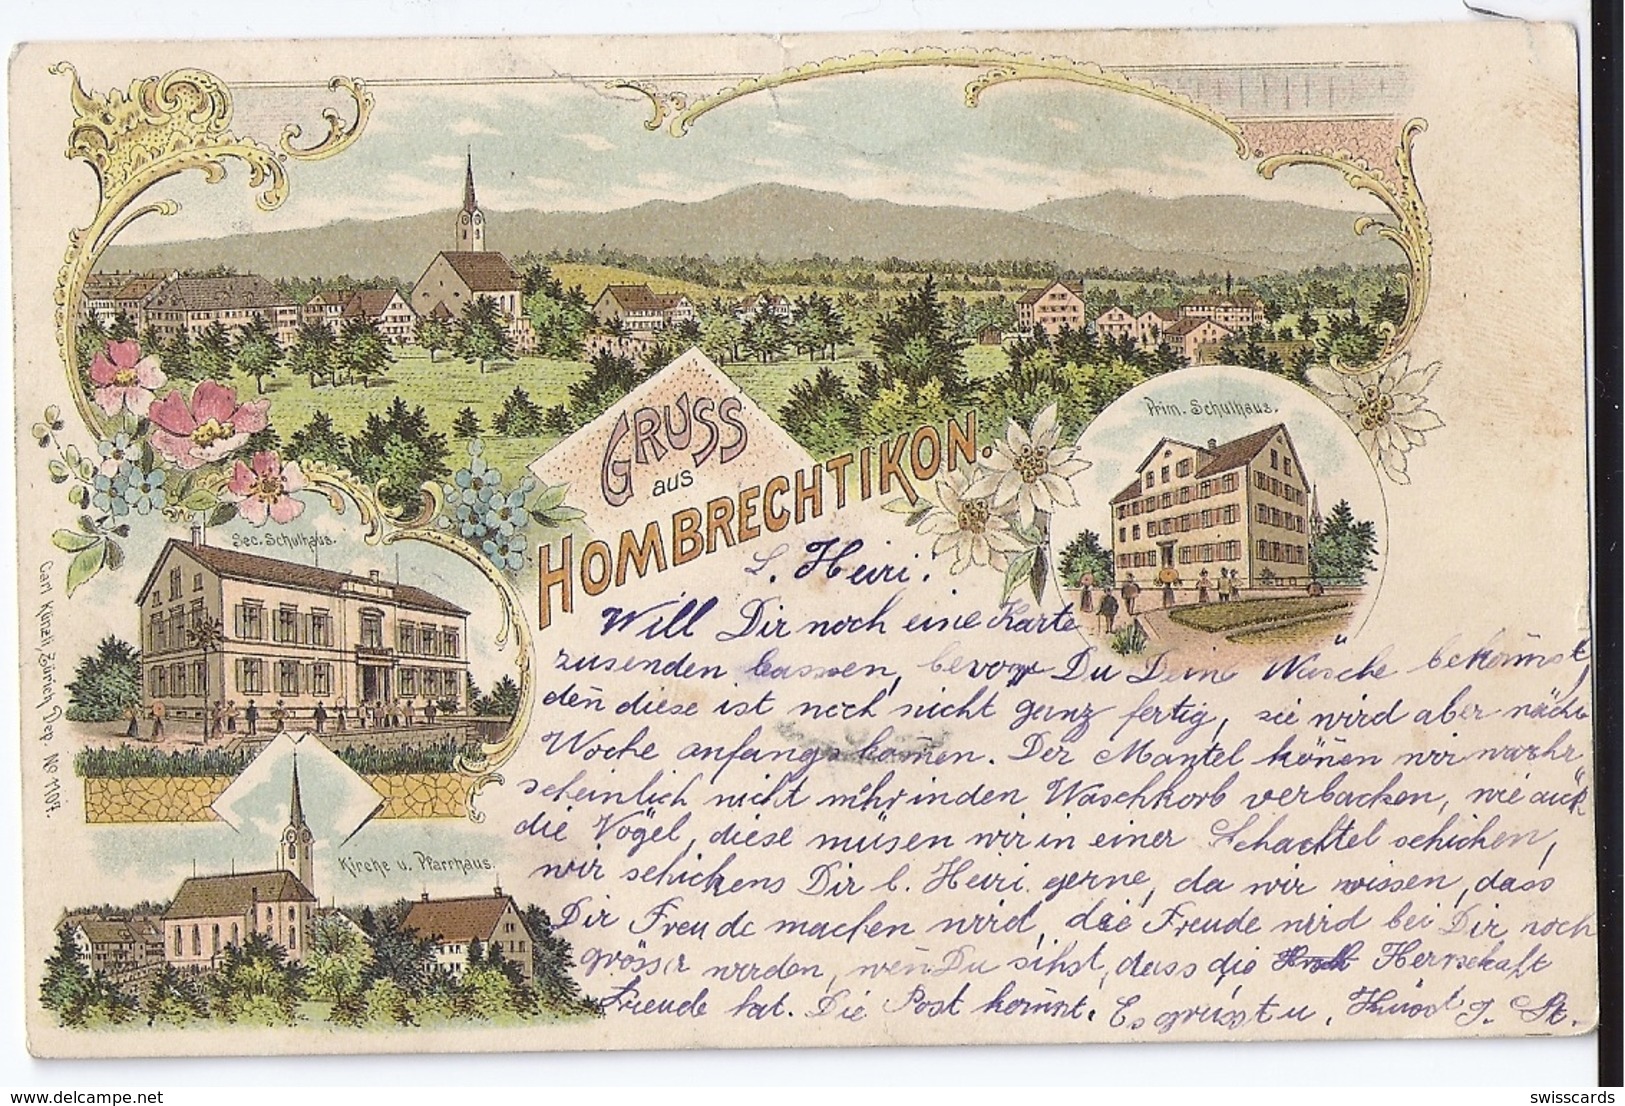 GRUSS
aus
HOMBRECHTIKON.
Prim. Schulhaus.
Sec. Schulhaus.
Kirche u. Pfarrhaus.
Carl Künzli, Zürich, Dep. No 1107.
L. Heiri!
Will Dir noch eine Karte
zusenden lassen, bevor Du Deine Wäsche bekom̄st,
den̄ diese ist noch nicht ganz fertig, sie wird aber nächs
Woche anfangs kom̄en. Der Mantel kön̄en wir wahr
scheinlich nicht mehr in den Waschkorb verbacken, wie auch
die Vögel, diese müsen wir in einer Schachtel schicken,
wir schickens Dir l. Heiri gerne, da wir wissen, dass
Dir Freude machen wird, die Freude wird bei Dir noch
grösser werden, wen̄ Du sihst, dass die Herrschaft
Freude hat. Die Post kom̄t. Es grüsst u. Küsst J. St.
swisscards
www.delcampe.net